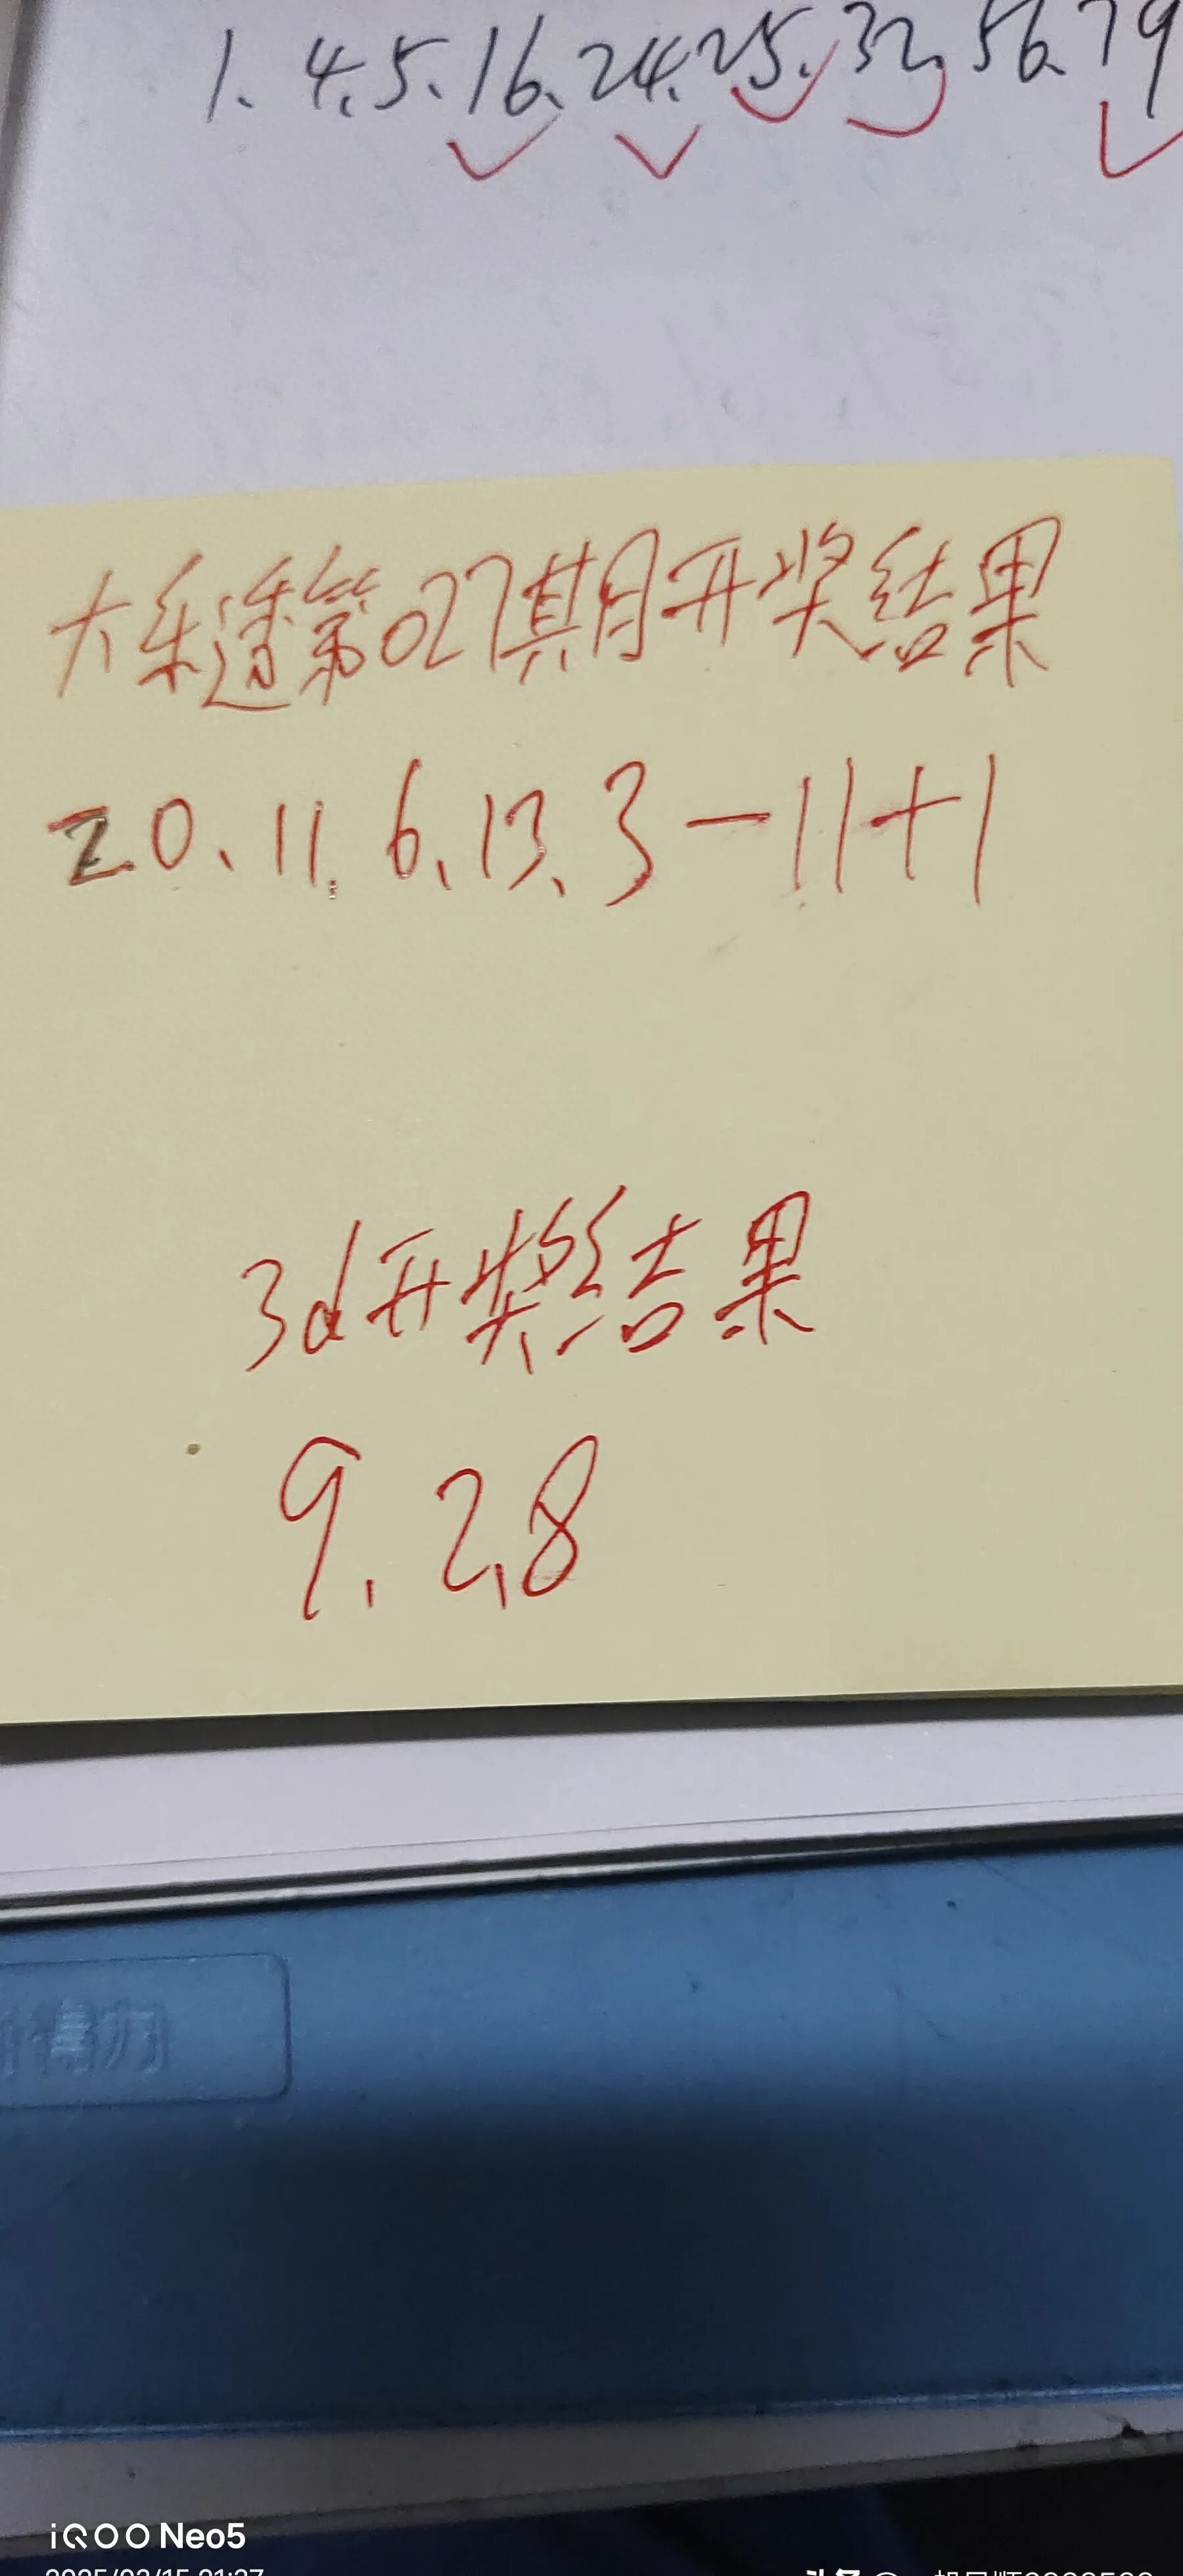 1.4.5.16.24.25.32,56.79
大乐透第027期开奖结果
20、11.6、13、3-11+1
3d开奖结果
9.2,8
得力
iQOO Neo5